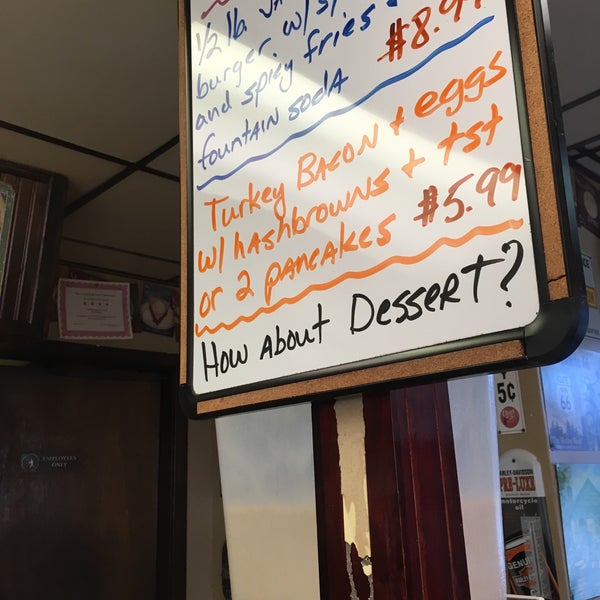 1/2 lb
burger. w/
and spicy fries
fountain soda $8.9
Turkey Bacon + eggs
w/ hashbrowns + tst
or 2 pancakes $5.99
How About Dessert?
EMPLOYEES
ONLY
5¢
66
HARLEY-DAVIDSON
PRE-LUXE
motorcycle
oil
GENU